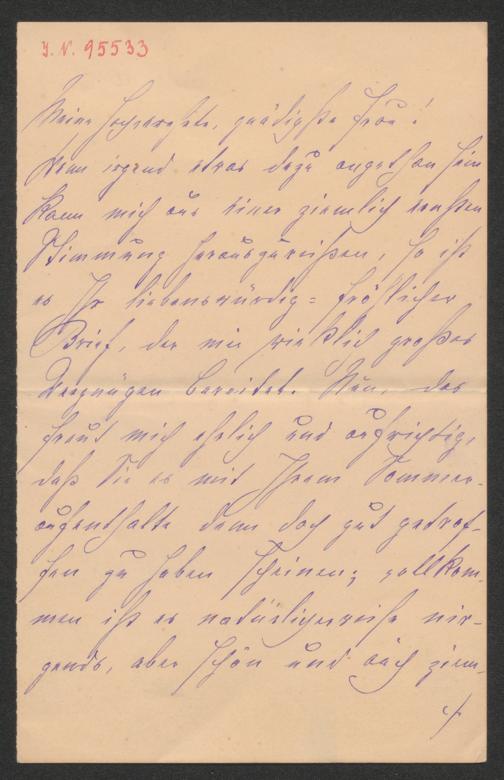 J. N. 95533
Meine hochverehrte, gnädigste Frau!
Wenn irgend etwas dazu angethan sein
kann mich aus einer ziemlich ernsten
Stimmung herauszureißen, so ist
es Ihr liebenswürdig-fröhlicher
Brief, der mir wirklich großes
Vergnügen bereitet. Nun, das
freut mich ehrlich und aufrichtig,
daß Sie es mit Ihrem Sommer-
aufenthalte denn doch gut getrof-
fen zu haben scheinen; vollkom-
men ist es natürlicherweise nir-
gends, aber schön und auch ziem-